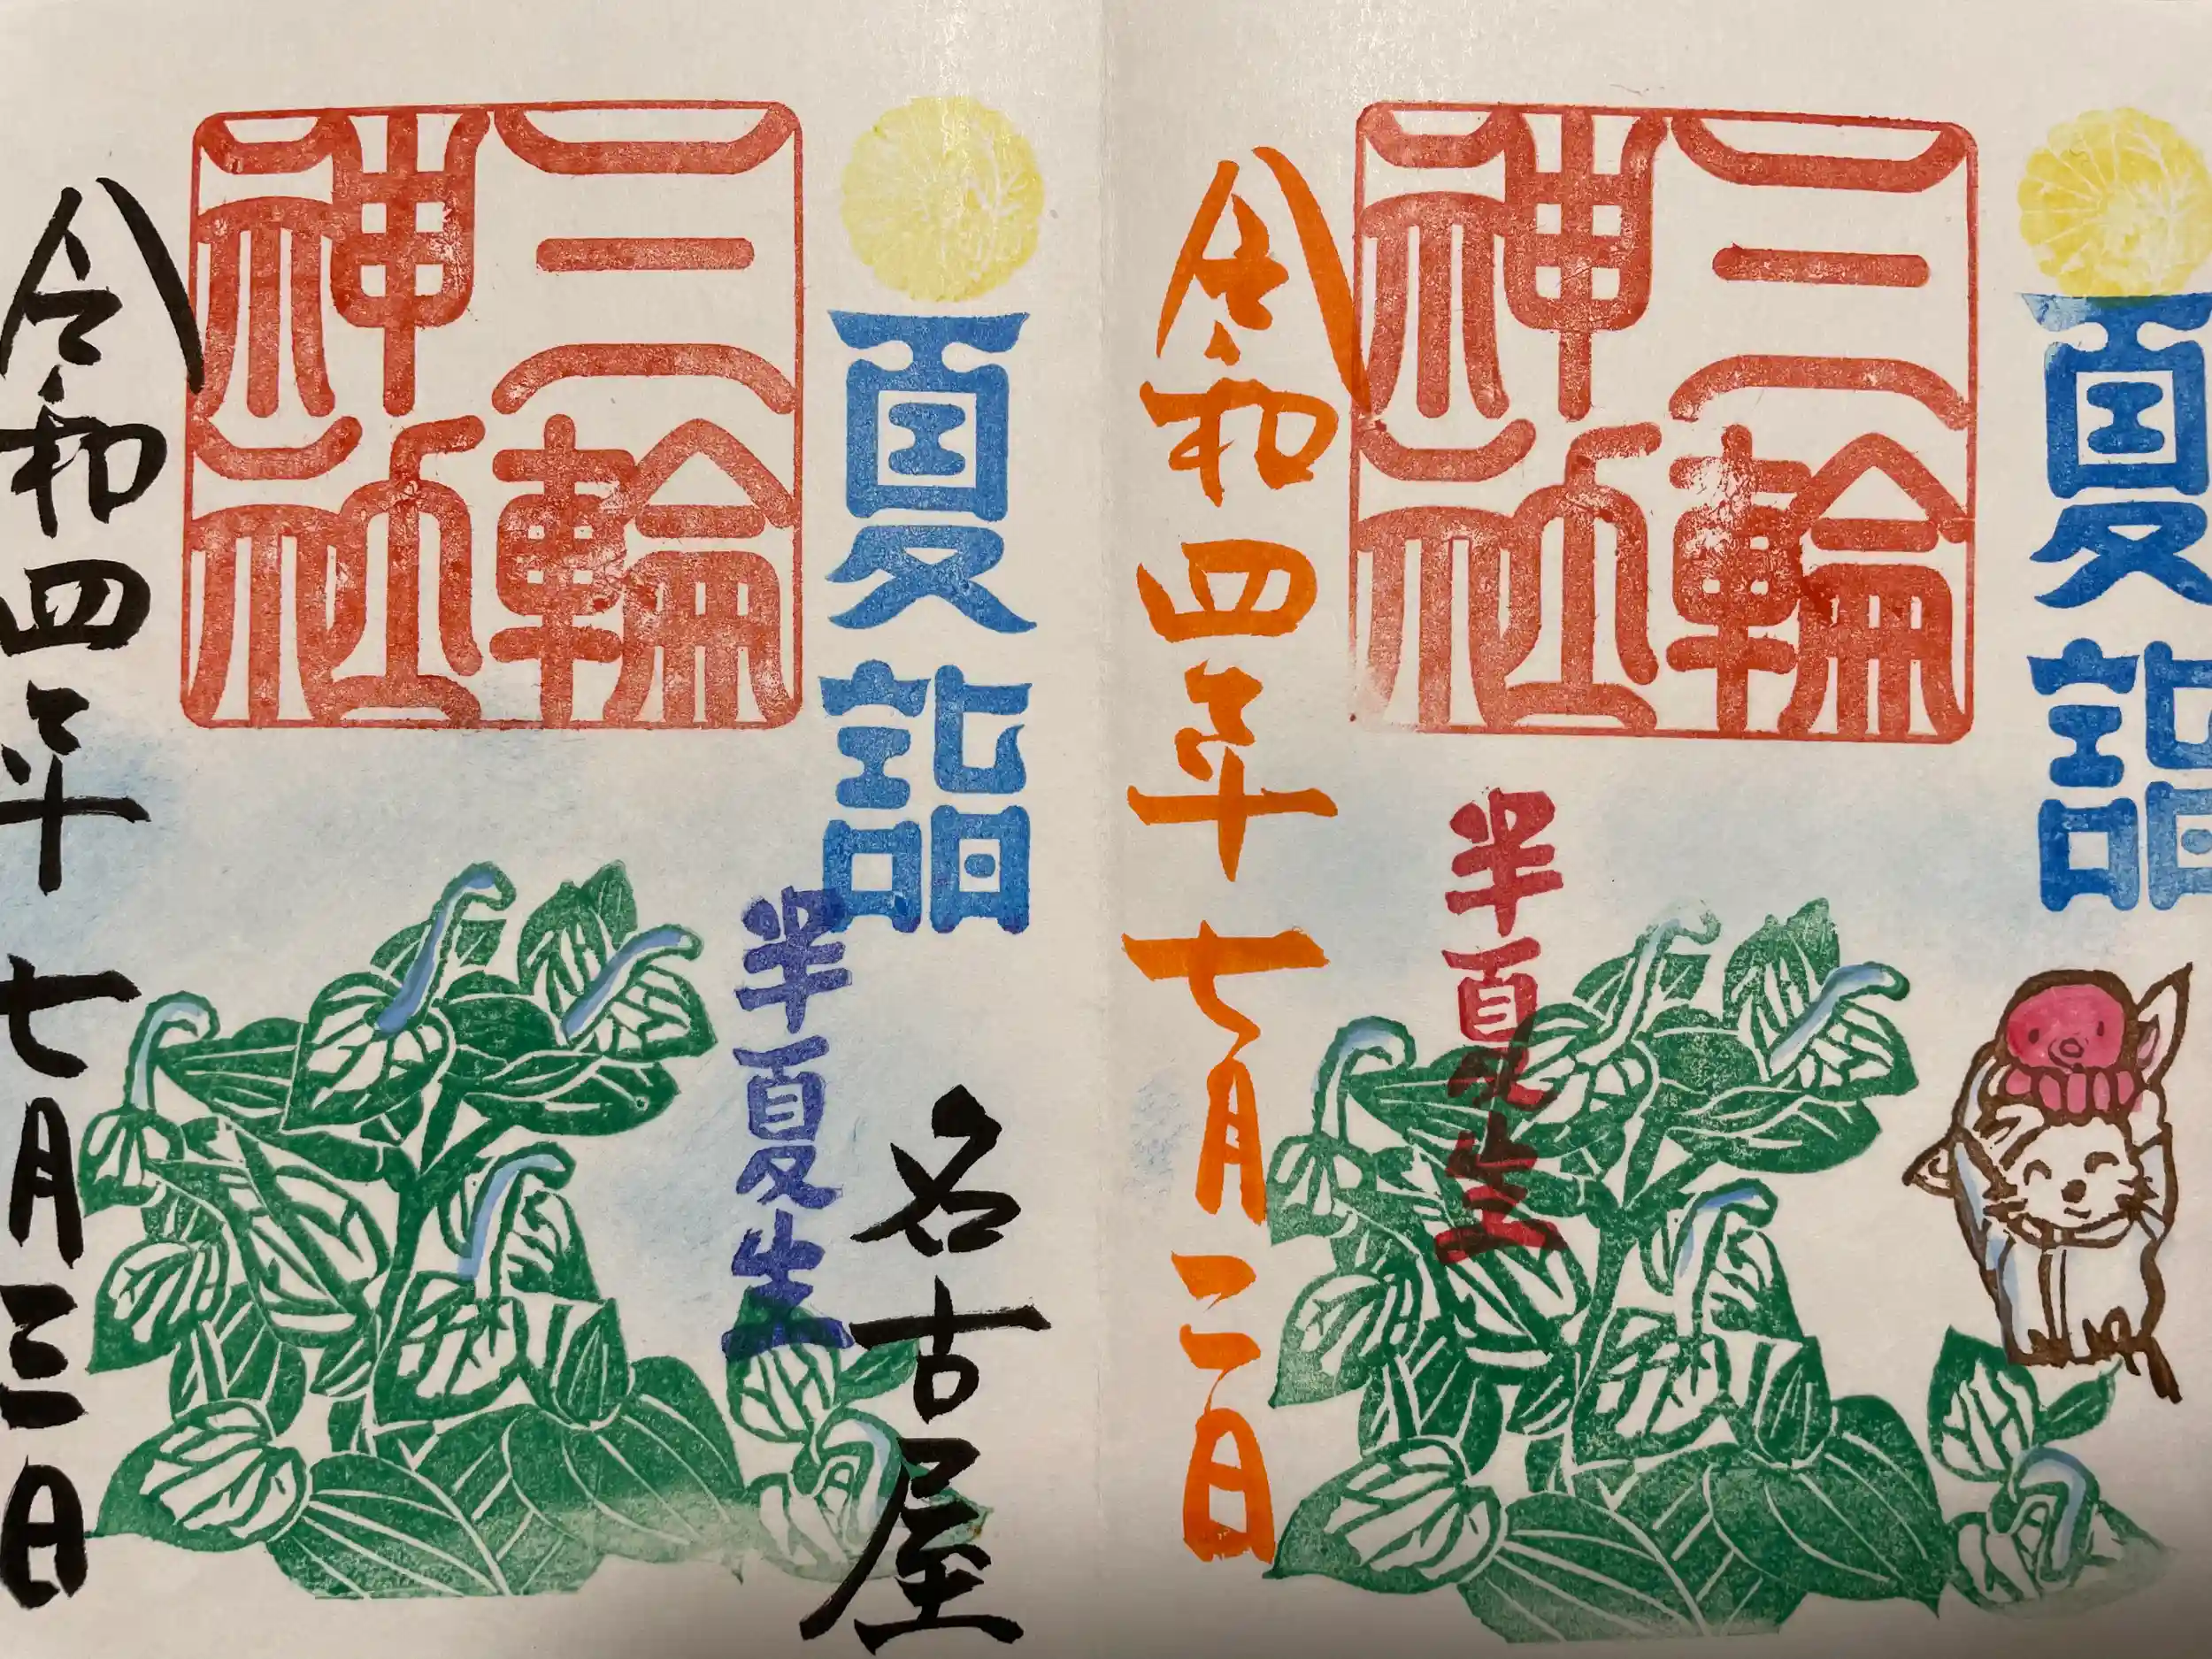 夏詣
三輪
神社
半夏生
令和四年七月二日
夏詣
名古屋
半夏生
三輪
神社
令和四年七月三日